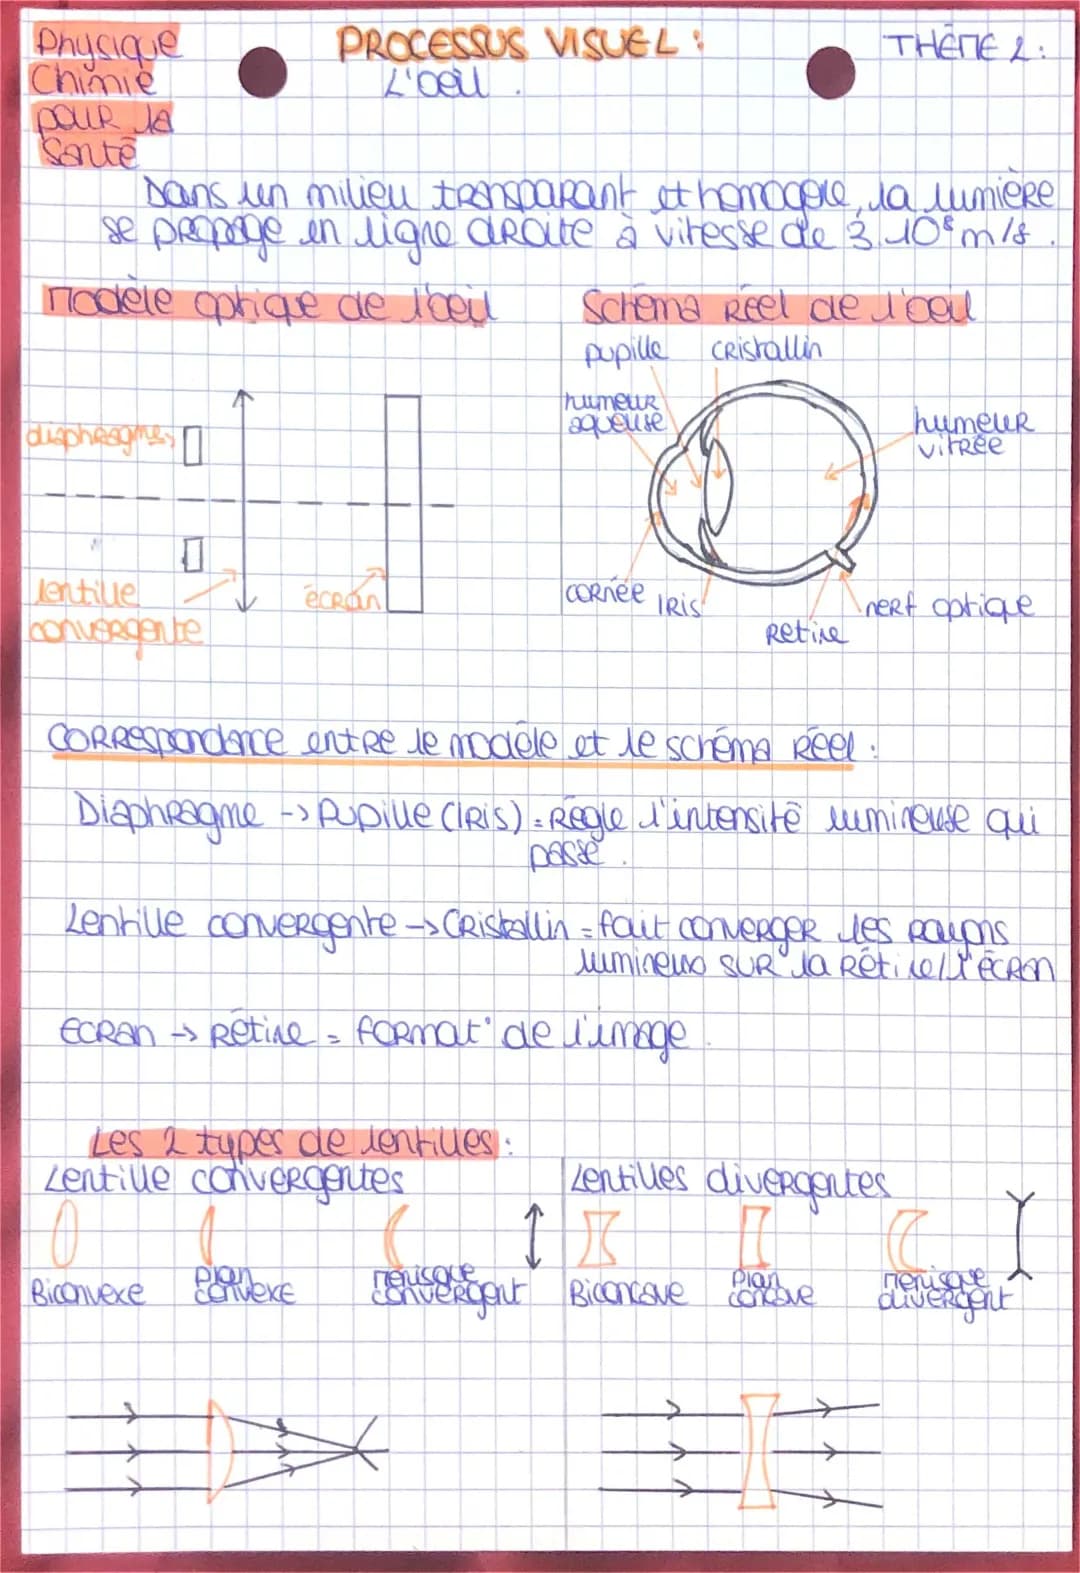 Physique
Chimie
pour la
Santé
PROCESSUS VISUEL :
L'oeil.
THÈME 2 :
Dans un milieu transparant et homogène, la lumière
se propage en ligne droite à vitesse de 3.10⁸ m/s.
Modèle optique de l'oeil
diaphragme
lentille
convergente
écran
Schéma Réel de l'oeil
pupille
cristallin
humeur
aqueuse
humeur
vitrée
cornée
IRis
Rétine
nerf optique
Correspondance entre le modèle et le schéma Réel :
Diaphragme -> Pupille (IRis) = Règle l'intensité lumineuse qui
passe.
Lentille convergente -> Cristallin = fait converger les rayons
lumineux sur la Rétine/l'écran
Ecran -> Rétine = format° de l'image.
Les 2 types de lentilles :
Lentille convergentes
Biconvexe
Plan
convexe
Ménisque
convergent
Lentilles divergentes
Biconcave
Plan
concave
Ménisque
divergent